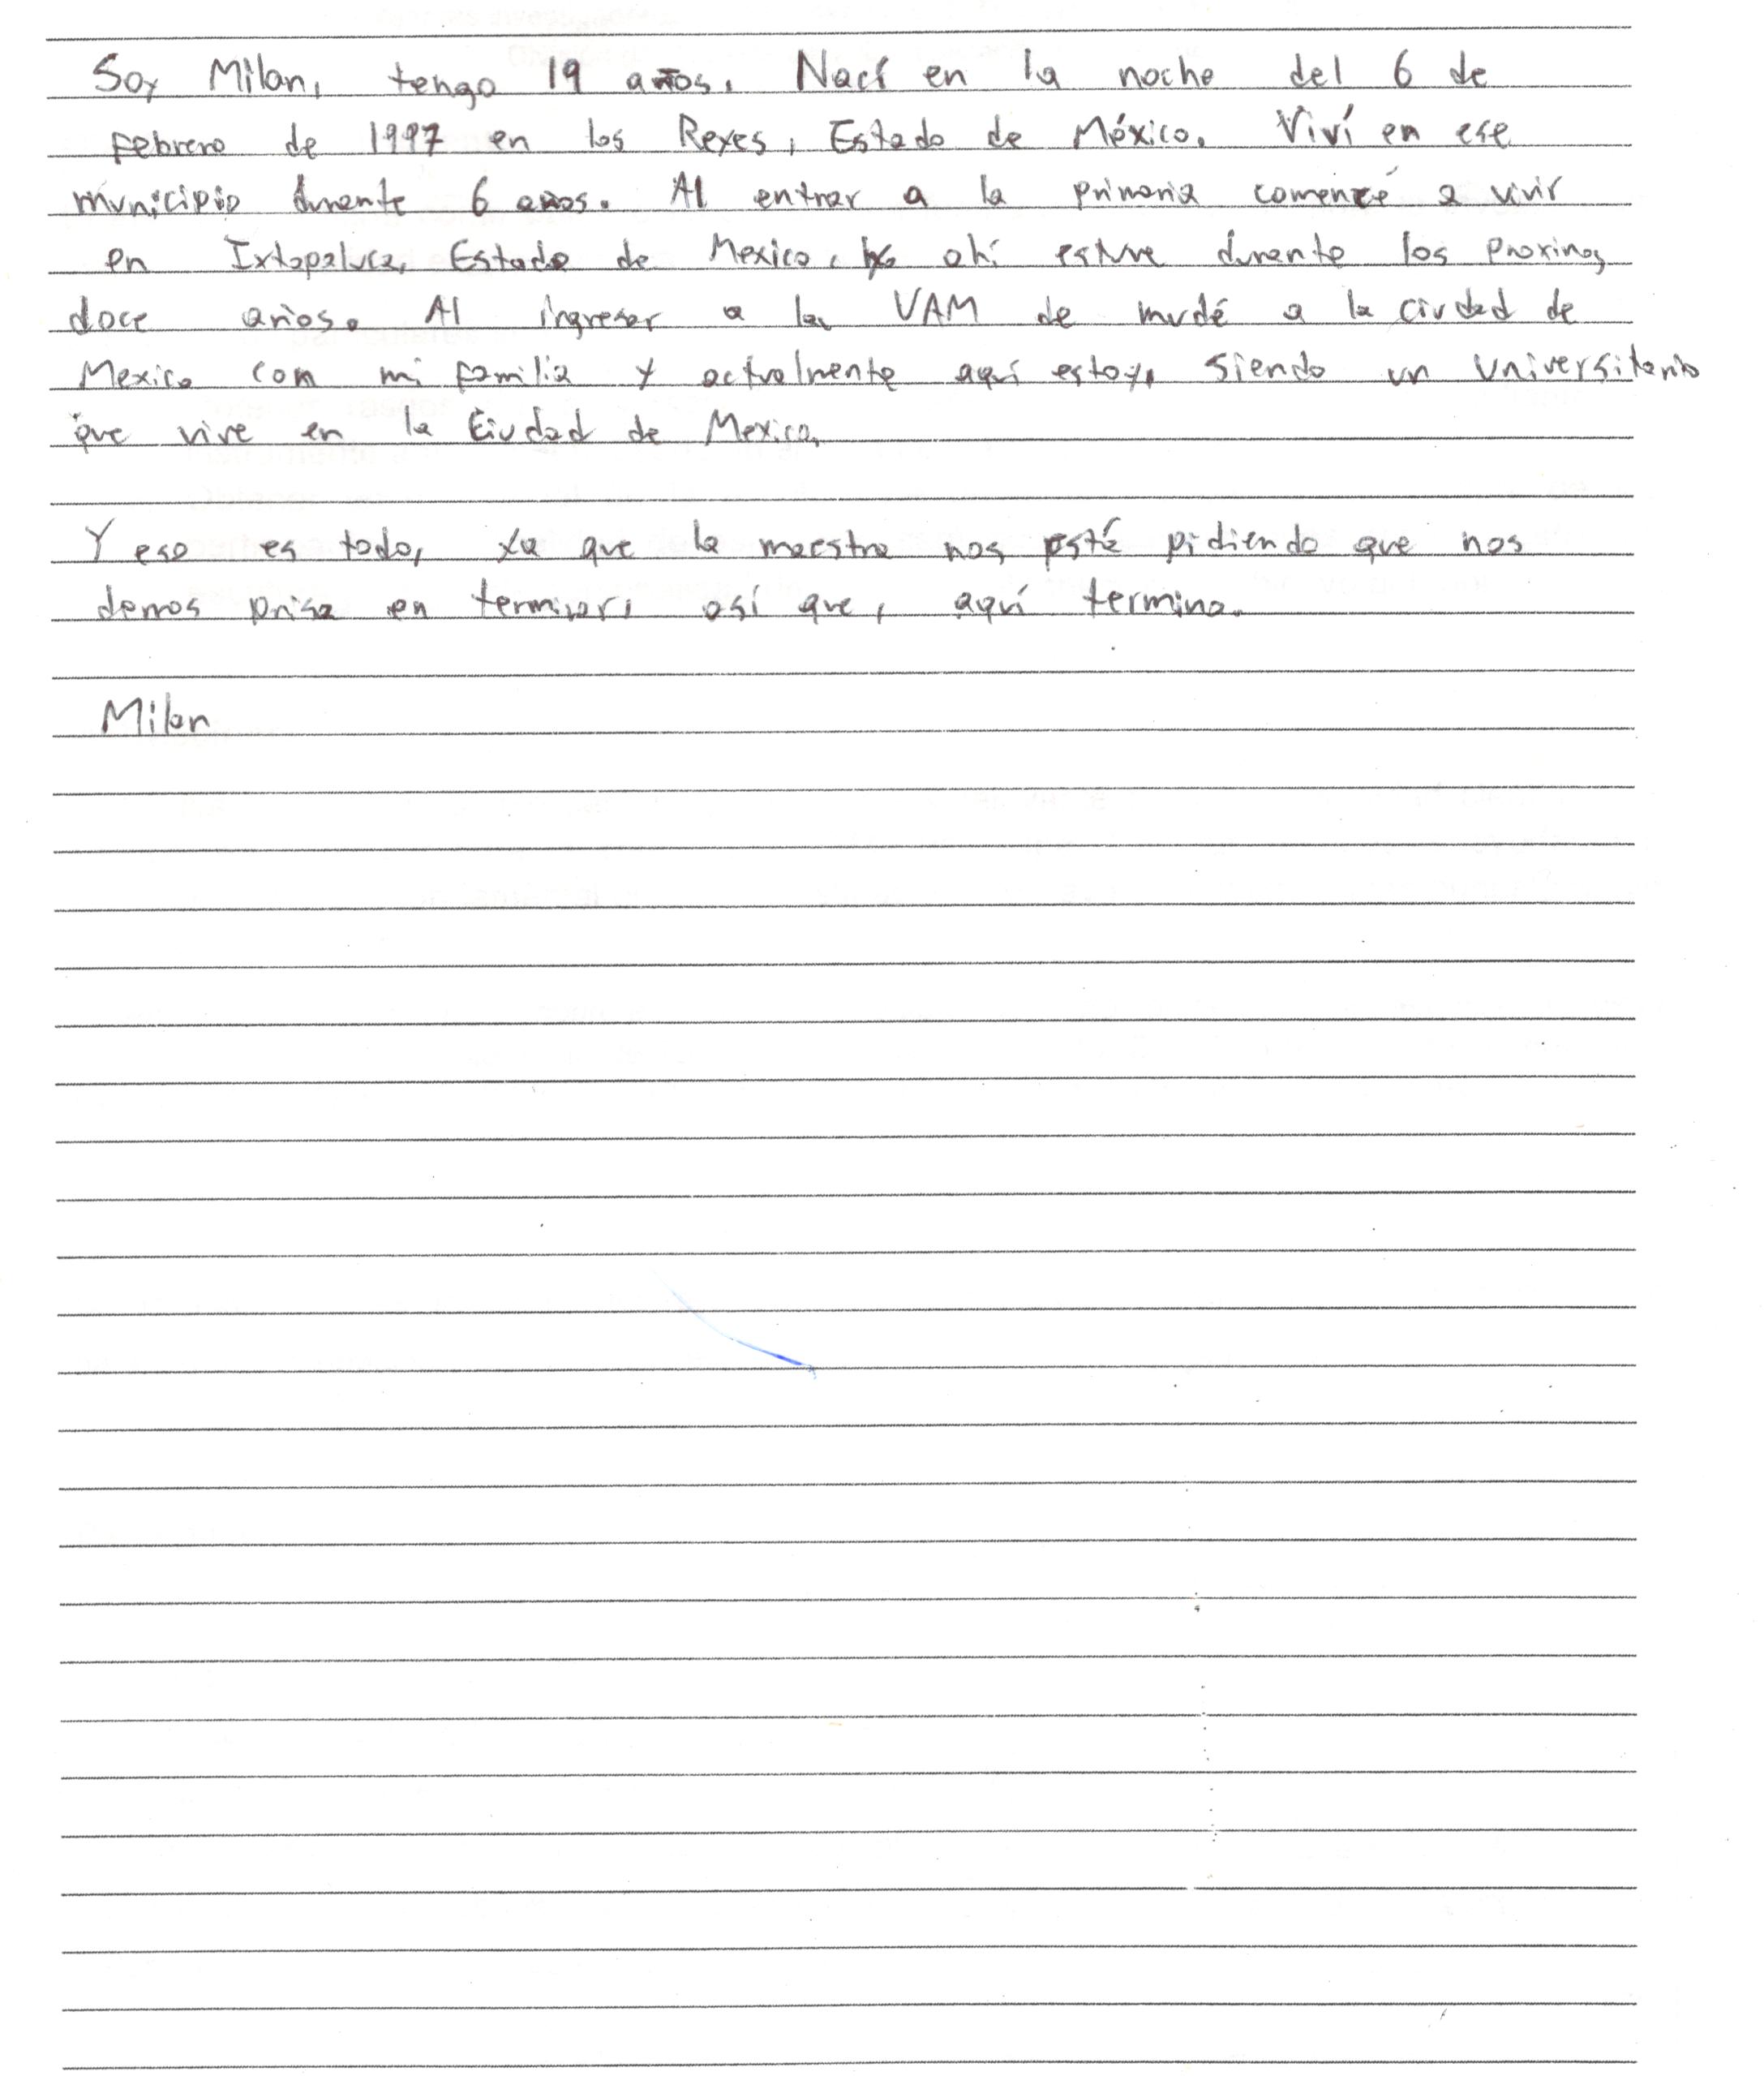 Soy Milan, tengo 19 años. Nací en la noche del 6 de
febrero de 1997 en los Reyes, Estado de México. Viví en ese
municipio durante 6 años. Al entrar a la primaria comenzé a vivir
en Ixtapaluca, Estado de Mexico, ahí estuve durante los proximos
doce años. Al ingresar a la UAM de mudé a la ciudad de
Mexico con mi familia y actualmente aquí estoy, siendo un universitario
que vive en la Ciudad de Mexico.
Y eso es todo, ya que la maestra nos esté pidiendo que nos
demos prisa en terminar, así que, aquí termino.
Milan